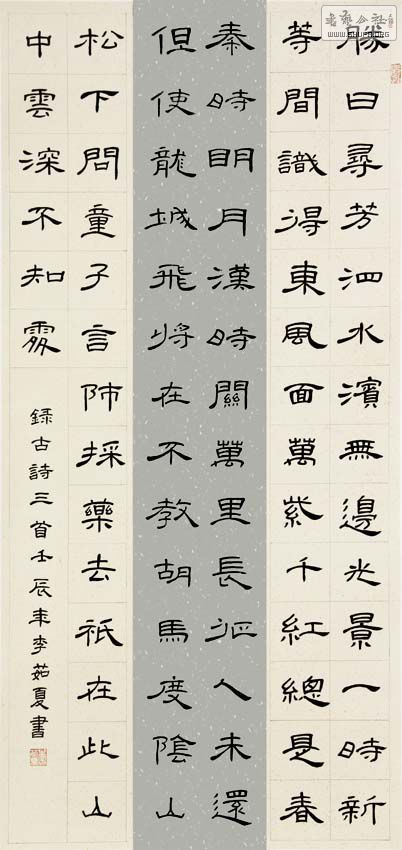 勝日尋芳泗水濱無邊光景一時新
等間識得東風面萬紫千紅總是春
秦時明月漢時關萬里長征人未還
但使龍城飛將在不教胡馬度陰山
松下問童子言師採藥去祇在此山
中雲深不知處
錄古詩三首壬辰年李茹夏書